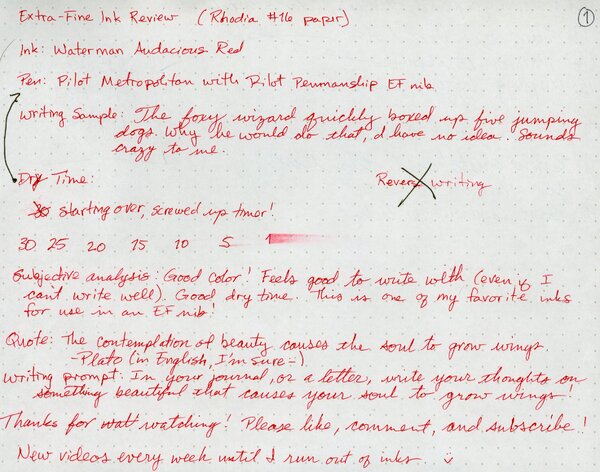 Extra-Fine Ink Review (Rhodia #16 paper) 1
Ink: Waterman Audacious Red
Pen: Pilot Metropolitan with Pilot Penmanship EF nib
Writing Sample: The foxy wizard quickly boxed up five jumping
dogs. Why he would do that, I have no idea. Sounds
crazy to me.
Dry Time: Reverse writing
30 starting over, screwed up timer!
30 25 20 15 10 5 1
Subjective analysis: Good color! Feels good to write with (even if I
can't write well). Good dry time. This is one of my favorite inks
for use in an EF nib!
Quote: The contemplation of beauty causes the soul to grow wings
-Plato (in English, I'm sure =)
Writing prompt: In your journal, or a letter, write your thoughts on
something beautiful that causes your soul to grow wings!
Thanks for watt watching! Please like, comment, and subscribe!
New videos every week until I run out of inks